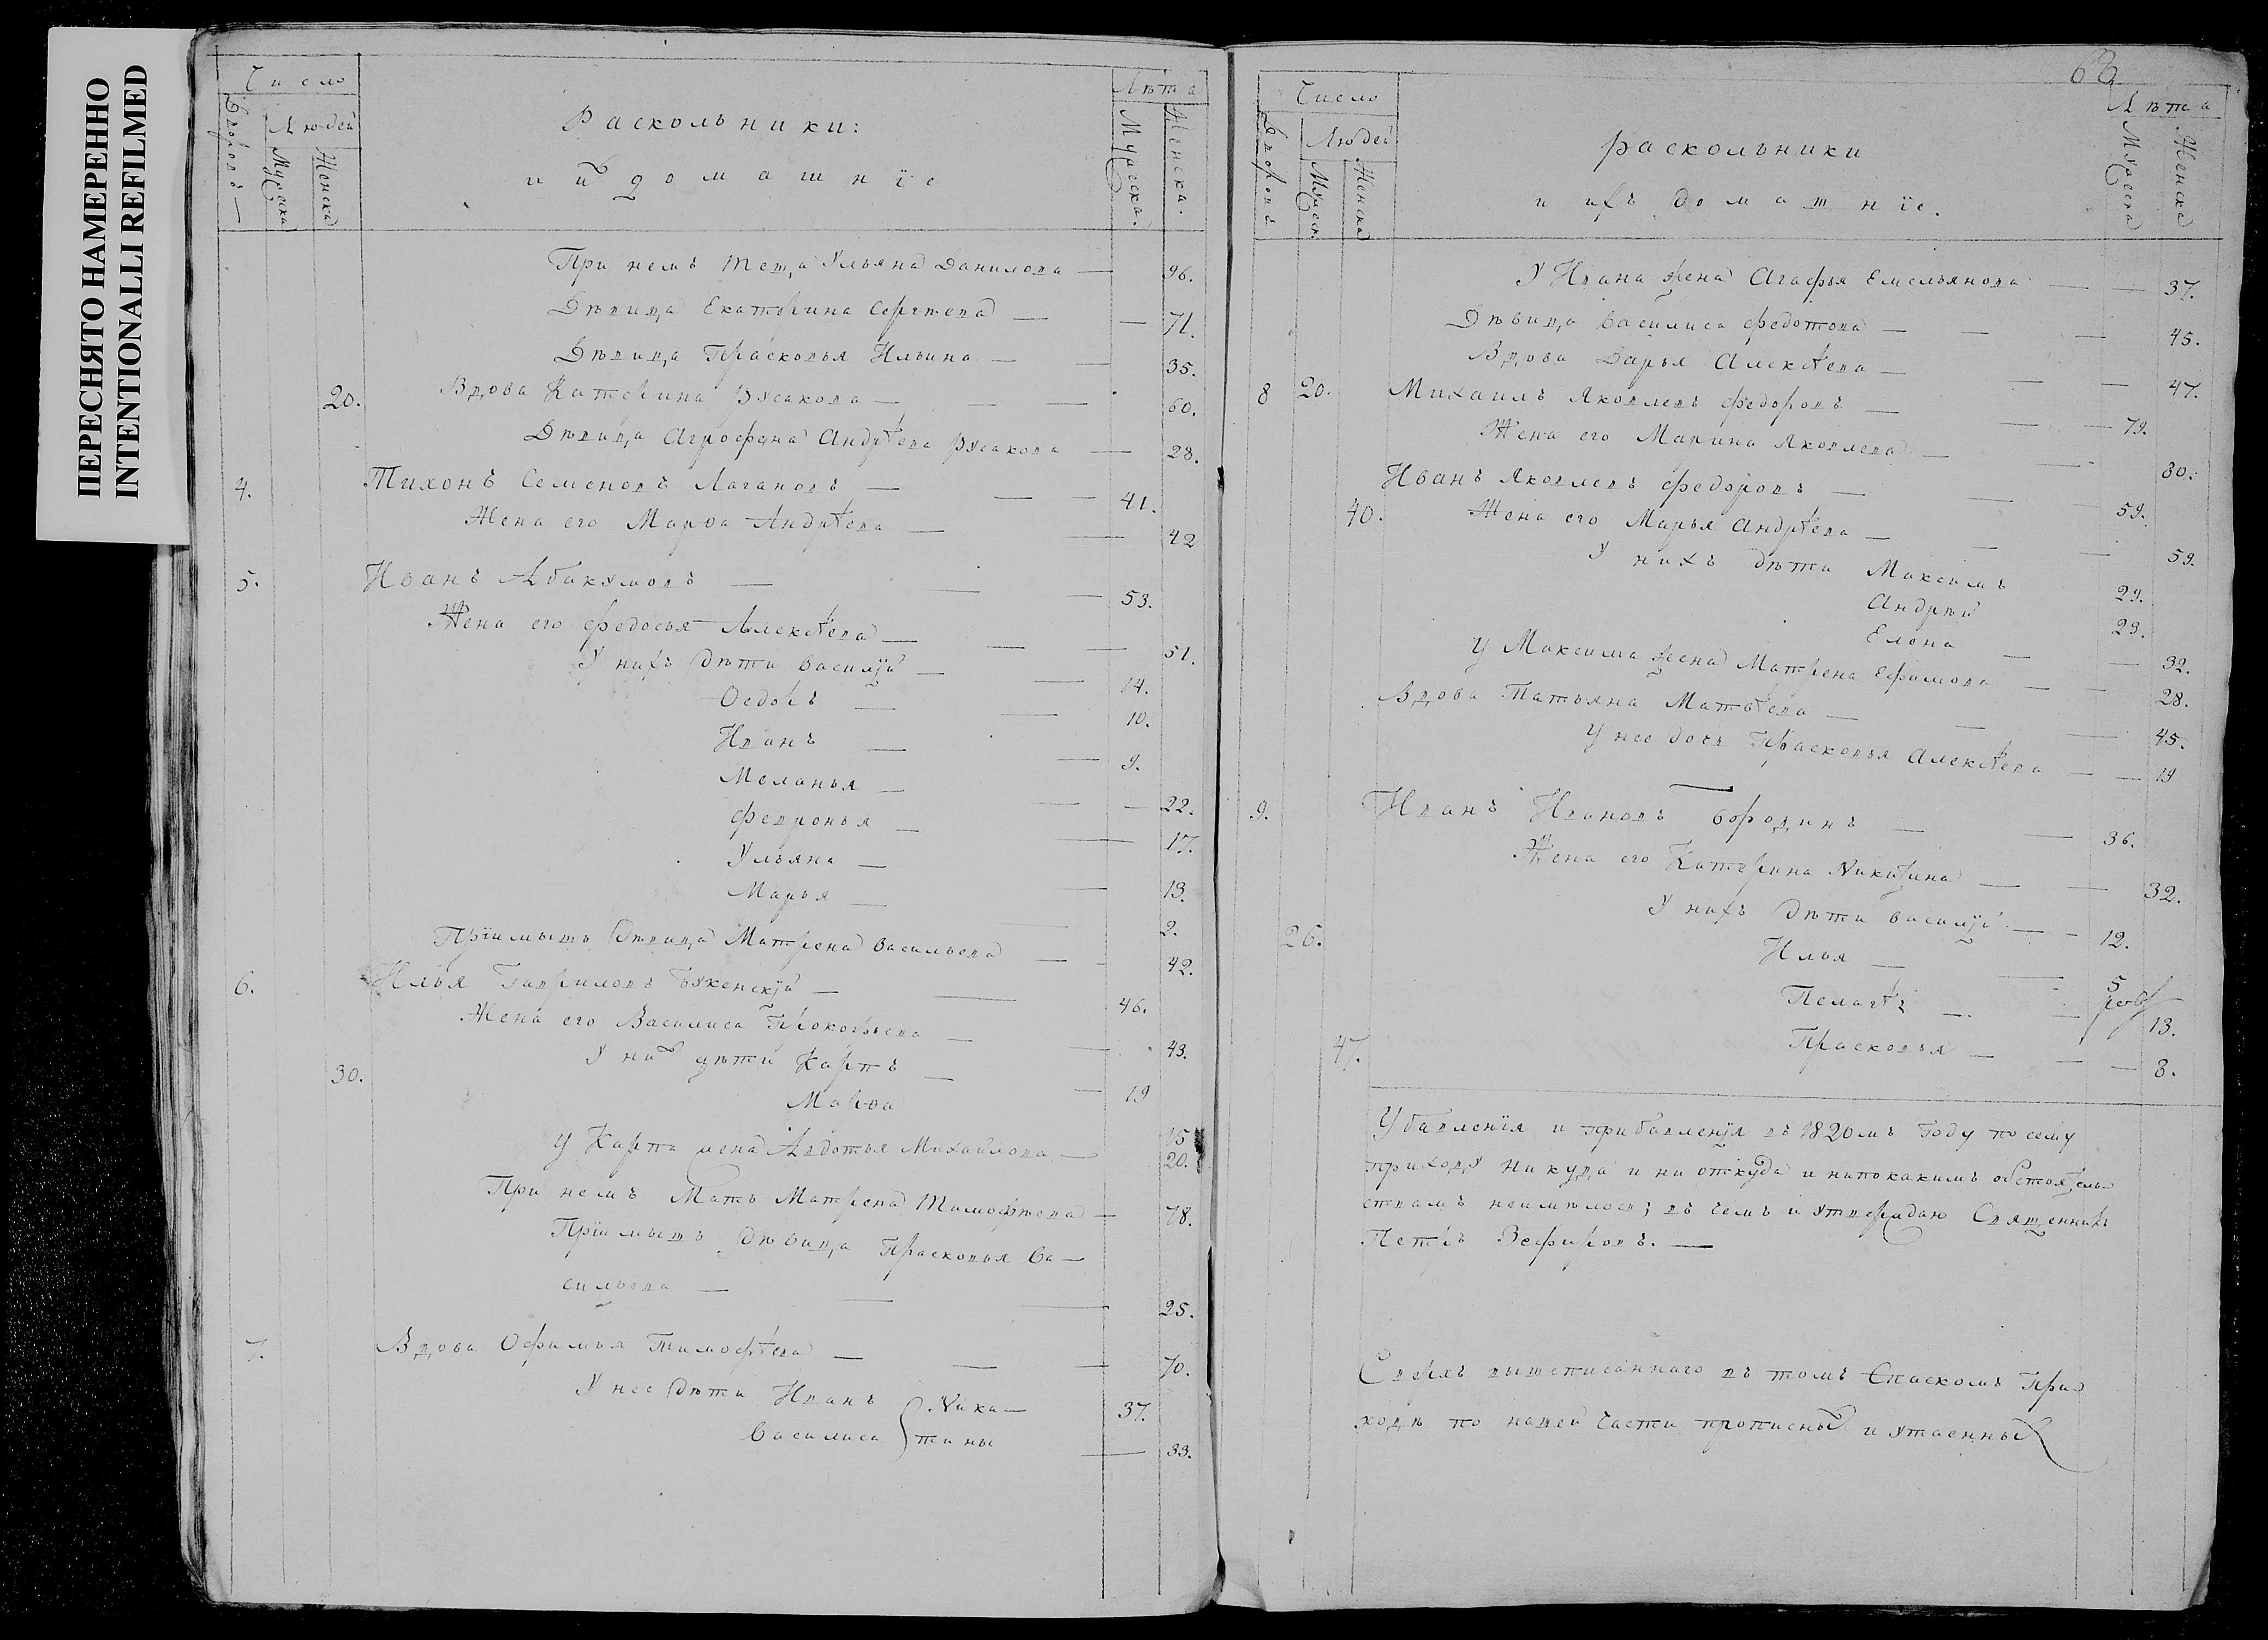 ПЕРЕСНЯТО НАМЕРЕННО
INTENTIONALLI REFILMED
Число
Дворовъ
Людей
Мужеска
Женска
Раскольники:
и их домашнїе
Лѣта
Мужеска.
Женска.
При немъ теща Ульяна Данилова — 96.
Дѣвица Екатерина Сергѣева — — 71.
Дѣвица Прасковья Ильина — — 35.
20. Вдова Катерина Русакова — — — 60.
Дѣвица Агрофена Андрѣева Русакова — 28.
4. Тихонъ Семеновъ Лагановъ — — — 41.
Жена его Марѳа Андрѣева — — 42
5. Иванъ Абакумовъ — — — 53.
Жена его Федосья Алексѣева — — — 51.
У нихъ дѣти Василїй — — 14.
Ѳедоръ — — 10.
Иванъ — — 9.
Меланья — — — 22.
Февронья — — 17.
Ульяна — — 13.
Марья — — 2.
Прїимышъ дѣвица Матрена Васильева — — 42.
6. Илья Гавриловъ — — 46.
Жена его Василиса Прокофьева — — 43.
30. У них дѣти Карпъ — — 19
Марѳа 15
У Карпа жена Авдотья Михайлова — 20.
При немъ Мать Матрена Тимофѣева — 78.
Прїимышъ дѣвица Прасковья Ва—
сильева — — — 25.
7. Вдова Офимья Тимофѣева — — — 70.
У нее дѣти Иванъ Ники— 37.
Василиса тины — 33.
63
Число
Дворовъ
Людей
Мужеск.
Женска
раскольники
и ихъ домашнїе.
Лѣта
Мужеска
Женска
У Ивана жена Агафья Емельянова — — 37.
Дѣвица Василиса Федотова — — — 45.
Вдова Дарья Алексѣева — — — 47.
8 20. Михаилъ Яковлевъ Федоровъ — — — 79.
Жена его Марина Яковлева — — 80.
Иванъ Яковлевъ Федоровъ — — — 59.
40. Жена его Марья Андрѣева — — — 59.
У нихъ дѣти Максимъ 29.
Андрѣй 23.
Елена — — 32.
У Максима жена Матрена Ефимова — — 28.
Вдова Татьяна Матвѣева — — — 45.
У нее дочь Прасковья Алексѣева — — 19
9. Иванъ Ивановъ Бородинъ — — 36.
Жена его Катерина Никитина — — 32.
У нихъ дѣти Василїй — — 12.
26. Илья — — 5
Пелагѣя — — 13.
47. Прасковья — — — 8.
Убавленїя и прибавленїя въ 1820мъ Году по сему
приходу никуда и ни откуда и нипокакимъ обстоятель-
ствамъ неимѣлось; въ чемъ и утверждаю Священникъ
Петръ Зефировъ. —
Сверхъ вышеписаннаго въ томъ Спаскомъ При
ходѣ по нашей части прописных и утаенных